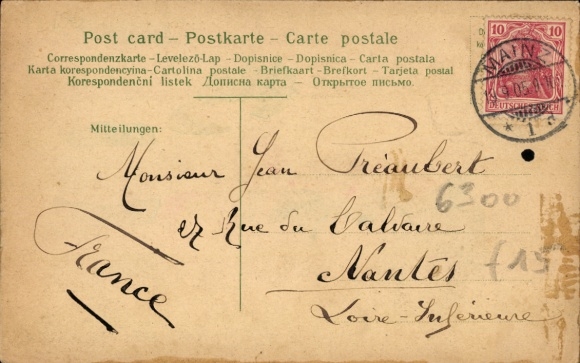 Post card – Postkarte – Carte postale
Correspondenzkarte – Levelező-Lap – Dopisnice – Dopisnica – Carta postala
Karta korespondencyina – Cartolina postale – Briefkaart – Brefkort – Tarjeta postal
Korespondenční listek – Дописна карта – Открытое письмо.
10 10
DEUTSCHES REICH
MAINZ
* 1 a
Mitteilungen:
Monsieur Jean Préaubert
27 Rue du Calvaire
Nantes
Loire-Inférieure
France
6300
f 15